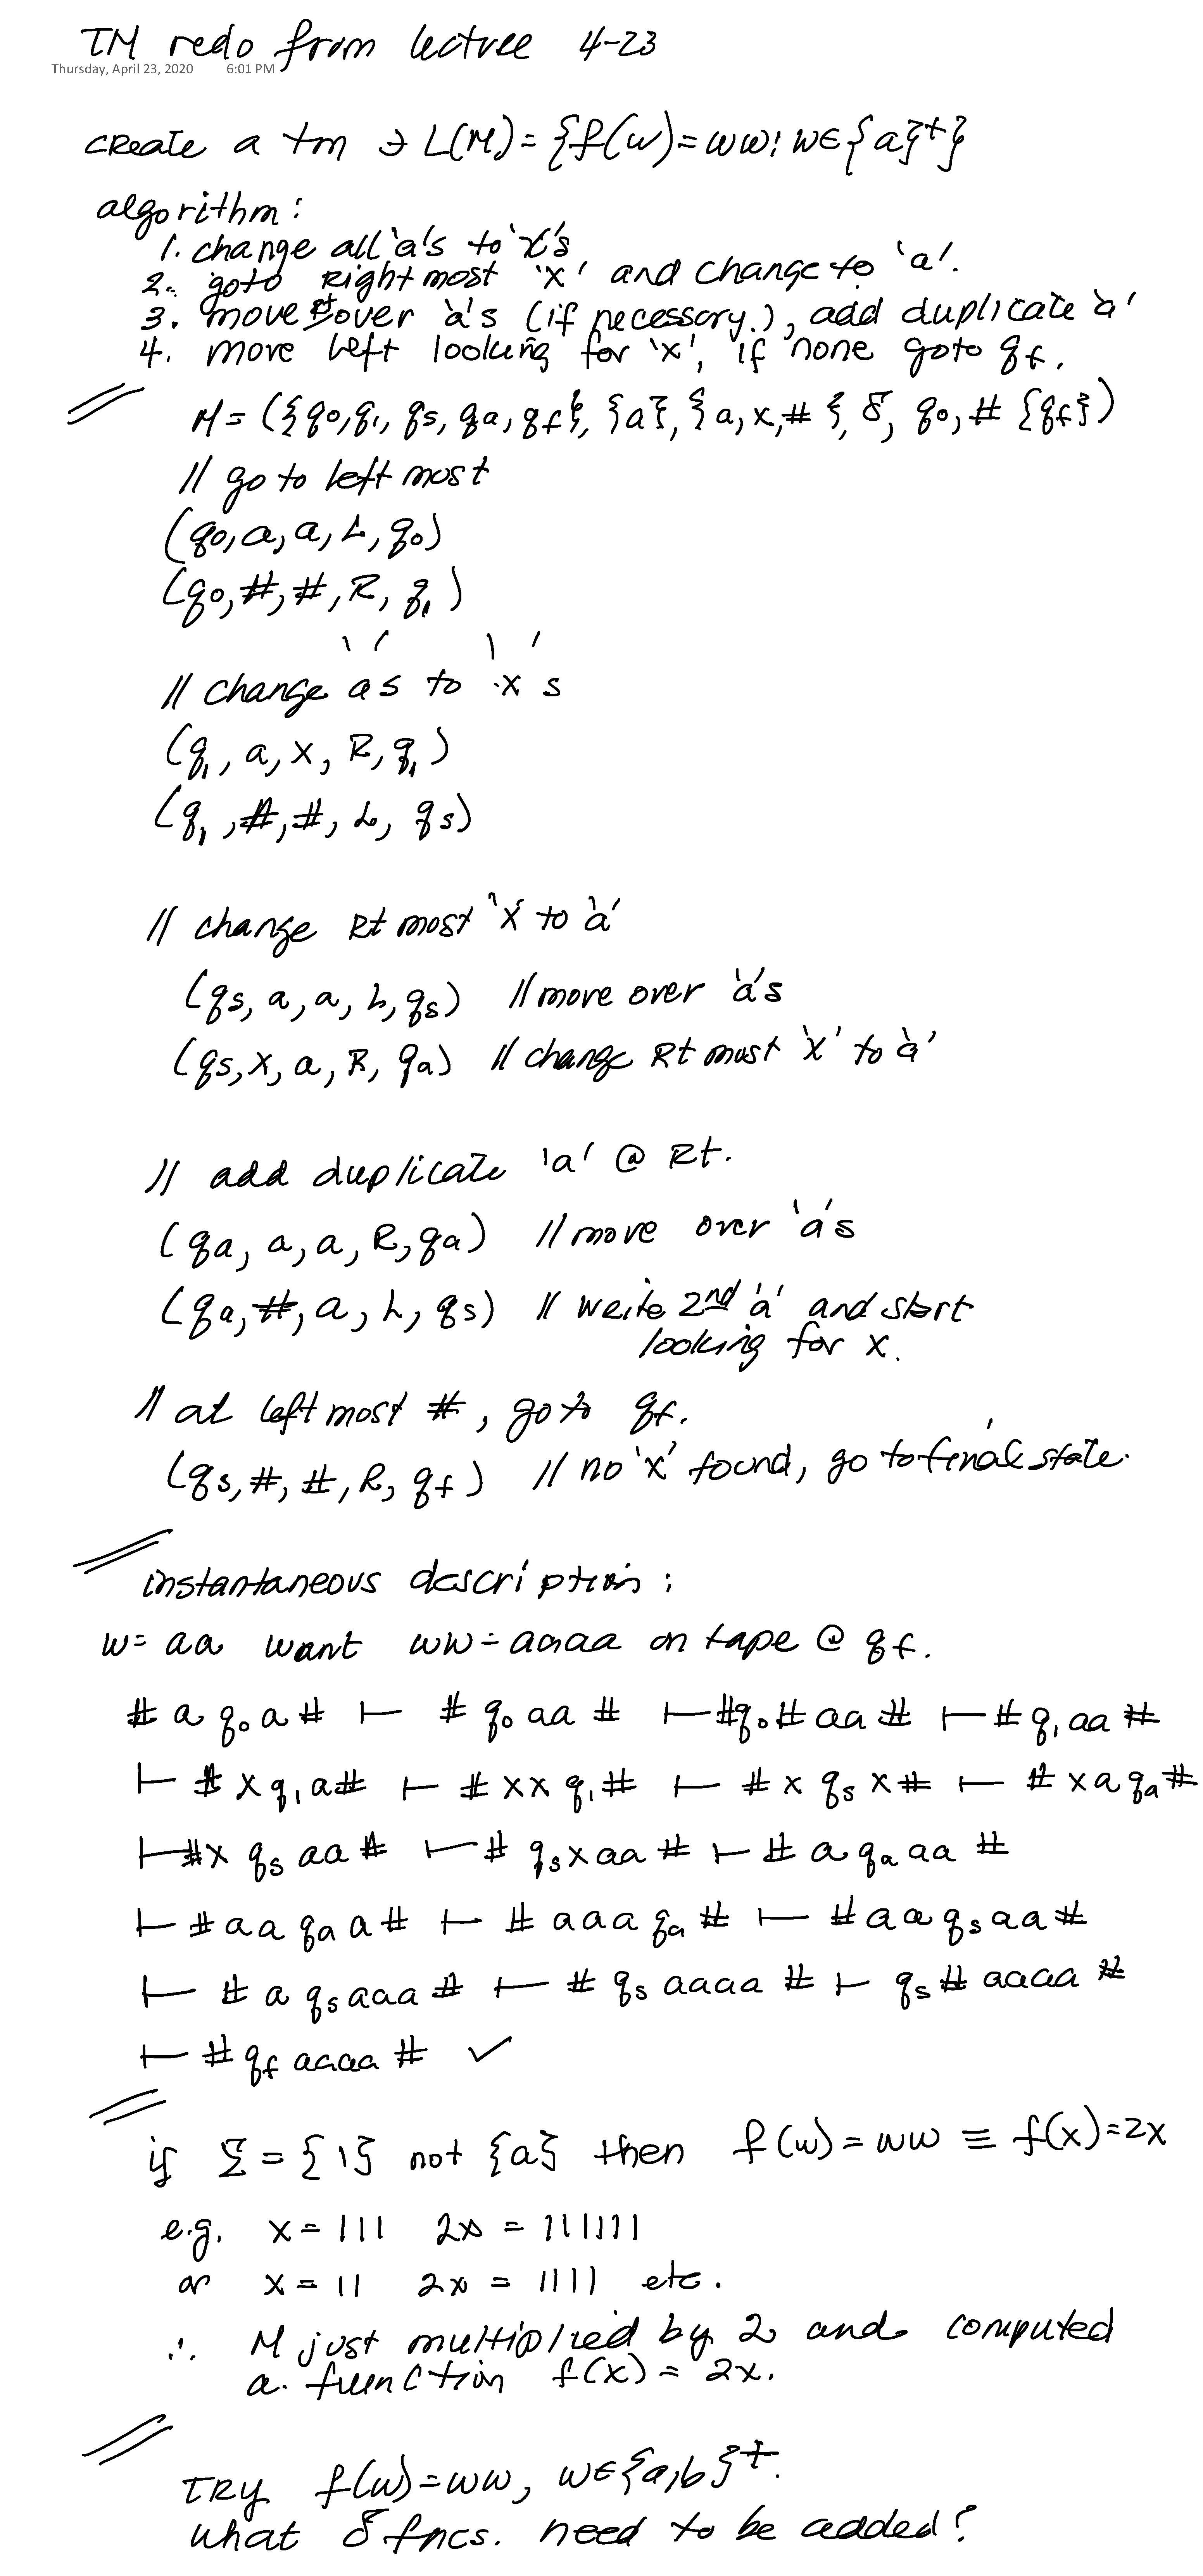 TM redo from lecture 4-23
Thursday, April 23, 2020 6:01 PM
create a tm ∋ L(M) = {f(w) = ww: w∈{a}+}
algorithm:
1. change all 'a's to 'x's
2. goto Rightmost 'x' and change to 'a'.
3. move Rt over 'a's (if necessary.), add duplicate 'a'
4. move left looking for 'x', if none goto qf.
M = ({q0,q1, qs, qa, qf}, {a}, {a, x, #}, δ, q0, # {qf})
// go to left most
(q0, a, a, L, q0)
(q0, #, #, R, q1)
// change 'a's to 'x's
(q1, a, x, R, q1)
(q1, #, #, L, qs)
// change Rt most 'x' to 'a'
(qs, a, a, L, qs) // move over 'a's
(qs, x, a, R, qa) // change Rt most 'x' to 'a'
// add duplicate 'a' @ Rt.
(qa, a, a, R, qa) // move over 'a's
(qa, #, a, L, qs) // write 2nd 'a' and start
looking for x.
// at left most #, go to qf.
(qs, #, #, R, qf) // no 'x' found, go to final state.
instantaneous description:
w = aa want ww = aaaa on tape @ qf.
# a q0 a # ⊢ # q0 aa # ⊢ # q0 # aa # ⊢ # q1 aa #
⊢ # x q1 a # ⊢ # xx q1 # ⊢ # x qs x # ⊢ # x a qa #
⊢ # x qs aa # ⊢ # qs x aa # ⊢ # a qa aa #
⊢ # aa qa a # ⊢ # aaa qa # ⊢ # aa qs aa #
⊢ # a qs aaa # ⊢ # qs aaaa # ⊢ qs # aaaa #
⊢ # qf aaaa # ✓
if Σ = {1} not {a} then f(w) = ww ≡ f(x) = 2x
e.g. x = 111 2x = 111111
or x = 11 2x = 1111 etc.
∴ M just multiplied by 2 and computed
a function f(x) = 2x.
TRY f(w) = ww, w∈{a,b}+.
what δ fncs. need to be added?